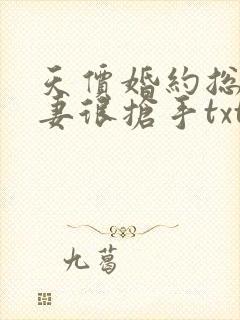 天價婚約總
妻很搶手txt
九葛